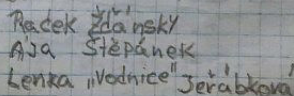 Radek Žďánský
Ája Štěpánek
Lenka „Vodnice" Jeřábková